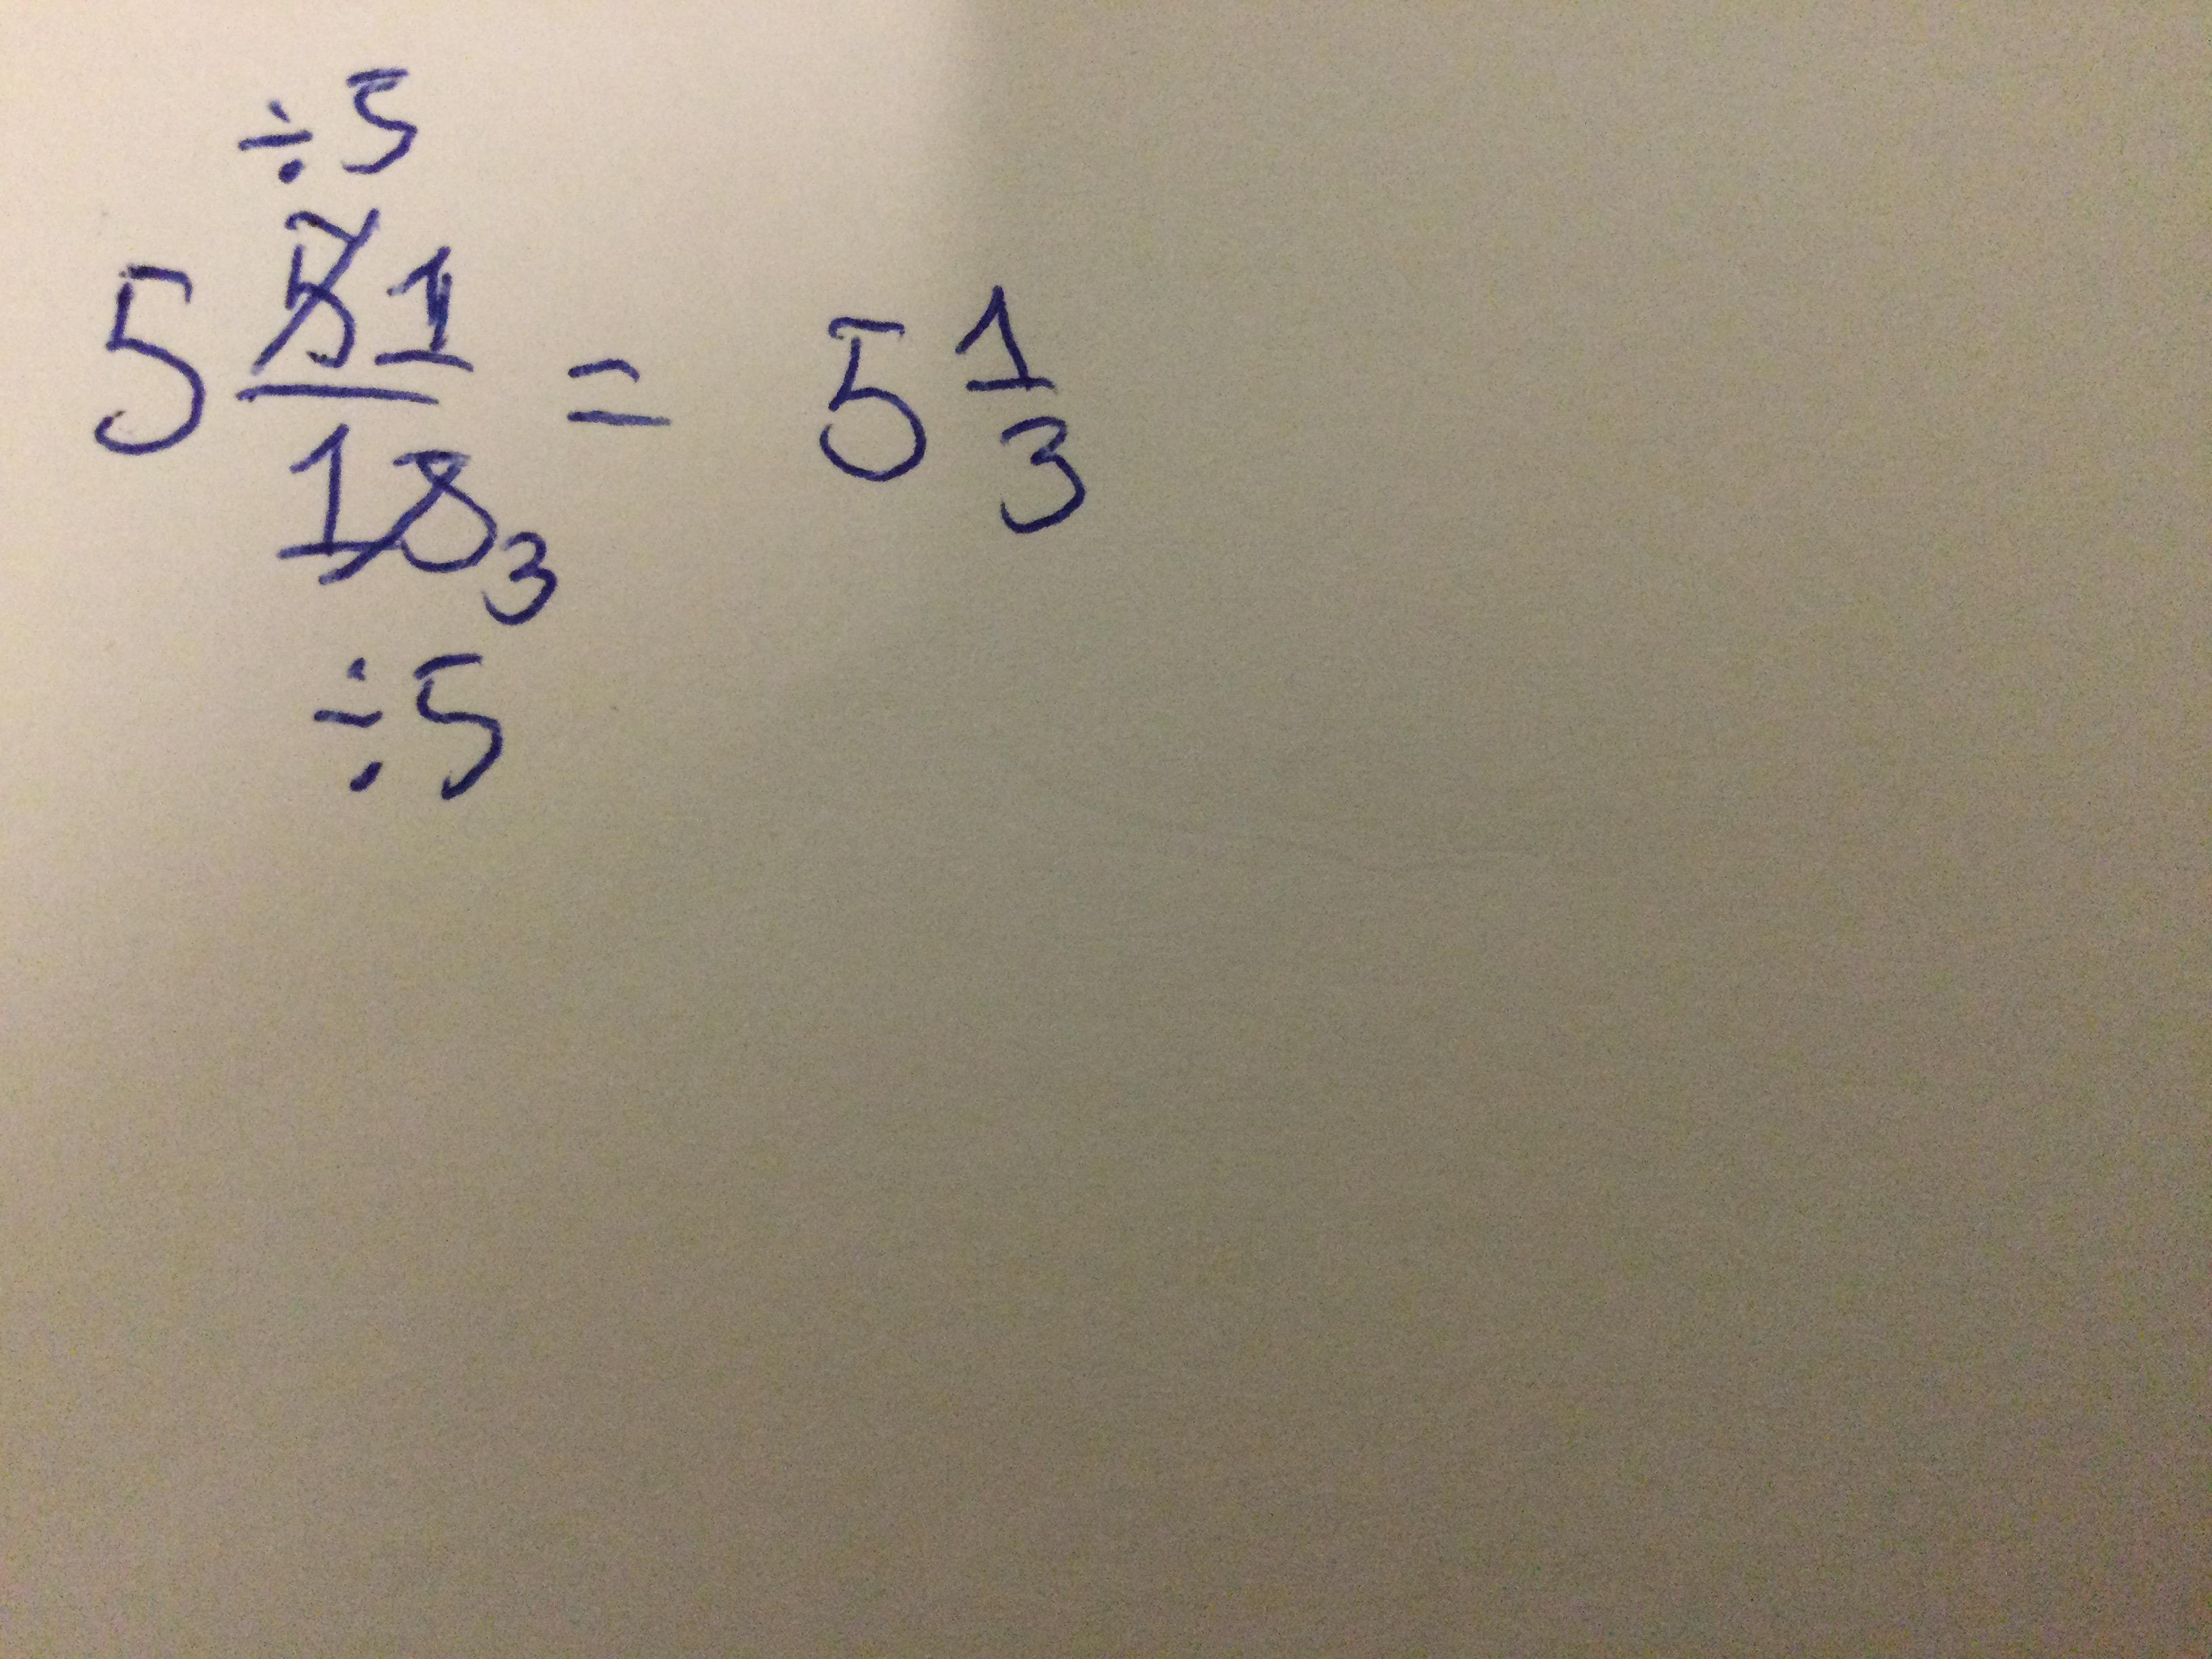 ÷5
5 5 1 / 15 3 = 5 1/3
÷5